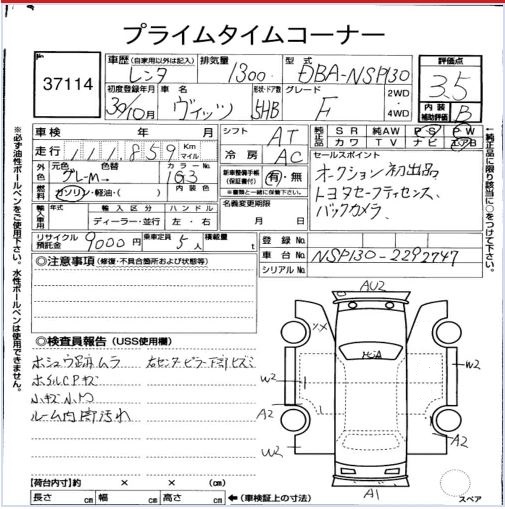 プライムタイムコーナー
37114
車歴 (自家用以外は記入) レンタ
排気量 1300
型式 DBA-NSP130
評価点 3.5
初度登録年月 30年10月
車名 ヴィッツ
形状・ドア数 5HB
グレード F
2WD・4WD
内装補助評価 B
車検 年 月
シフト AT
純正品 SR 純AW PS PW
カワ TV ナビ エアB
走行 111,859 Km マイル
冷房 AC
セールスポイント
オークション初出品
トヨタセーフティセンス、
バックカメラ
外色 元色 グレーM 色替 カラーNo. 1G3
燃料 ガソリン・軽油・( ) 内装色
新車整備手帳(保証書付) 有・無
※書類と一緒に保管下さい。
輸入車用 年式 輸入区分 ハンドル
ディーラー・並行 左・右
名義変更期限 月 日
リサイクル預託金 9000円 乗車定員 5人 積載量 t
登録No.
車台No. NSP130-2292747
シリアルNo.
◎注意事項 (修復・不具合箇所および状態等)
◎検査員報告 (USS使用欄)
ホシュウ跡ムラ 右センターピラー下部ヒズミ
ホイルCPキズ
小キズ小凹
ルーム内荷汚れ
AU2
XX
W2
A2
W2
W2
A2
A1
スペア
【荷台内寸】約 × × (cm)
長さ cm 幅 cm 高さ cm ←(車検証上の寸法)
※必ず油性ボールペンをご使用下さい。水性ボールペンは使用できません。
←純正品に限り該当に○をつけて下さい。